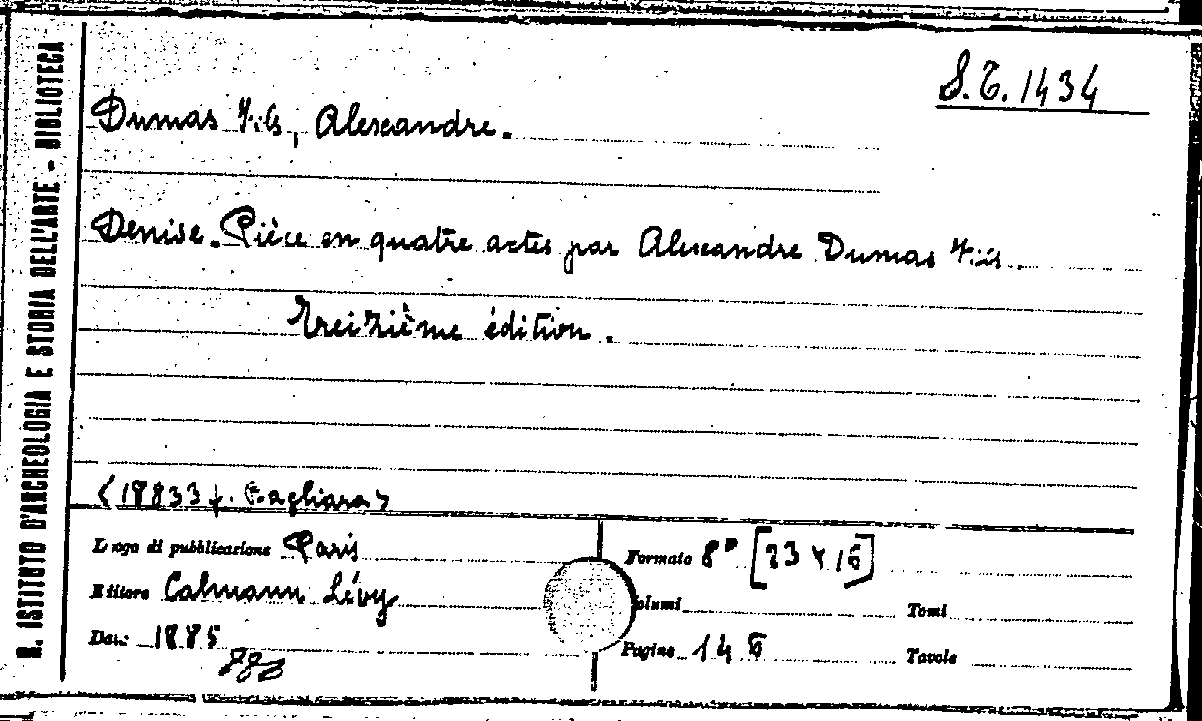 R. ISTITUTO D'ARCHEOLOGIA E STORIA DELL'ARTE - BIBLIOTECA
S.T. 1434
Dumas Fils, Alexandre.
Denise. Pièce en quatre actes par Alexandre Dumas Fils.
Treizième édition.
<18833 f. Gagliara>
Luogo di pubblicazione Paris
Formato 8° [23 x 16]
Editore Calmann Lévy
Volumi Tomi
Data 1885
Pagine 146 Tavole